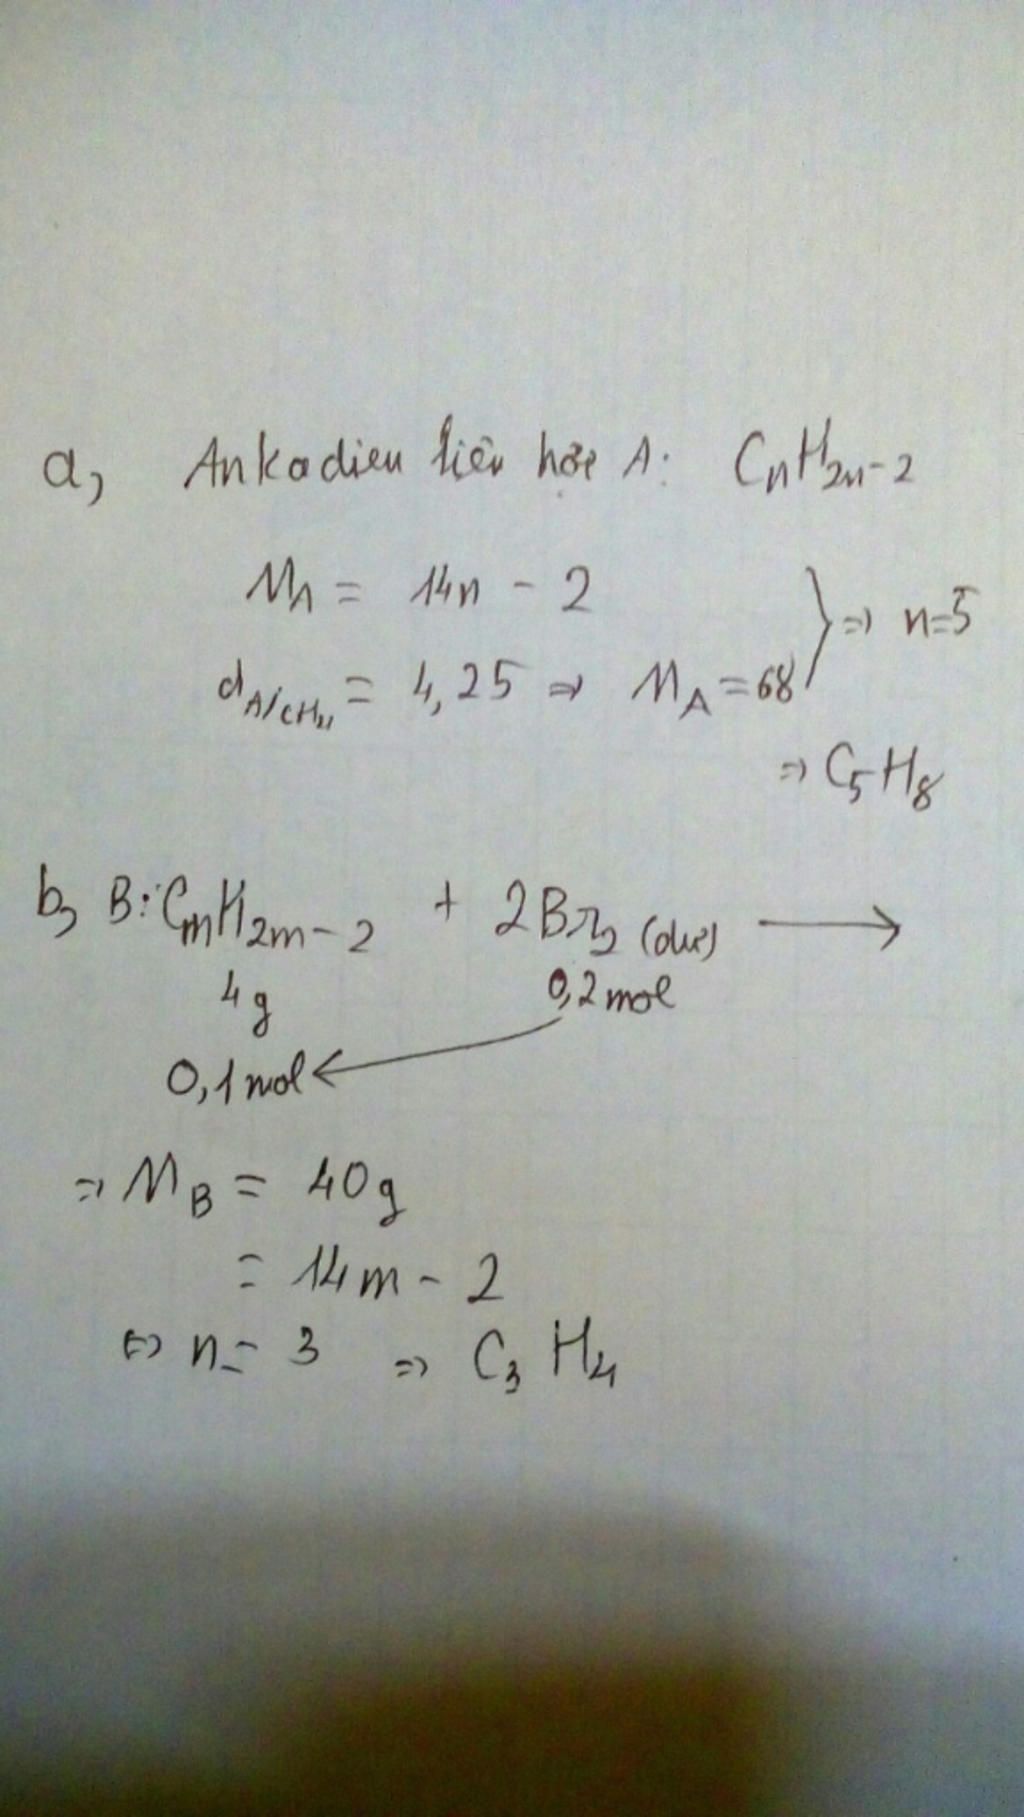 a, Ankadien liên hợp A: CnH2n-2
MA = 14n - 2
dA/CH4 = 4,25 => MA = 68 } => n=5
=> C5H8
b, B: CmH2m-2 + 2Br2 (dư) →
4g 0,2mol
0,1mol ←
=> MB = 40g
= 14m - 2
<=> n = 3 => C3H4